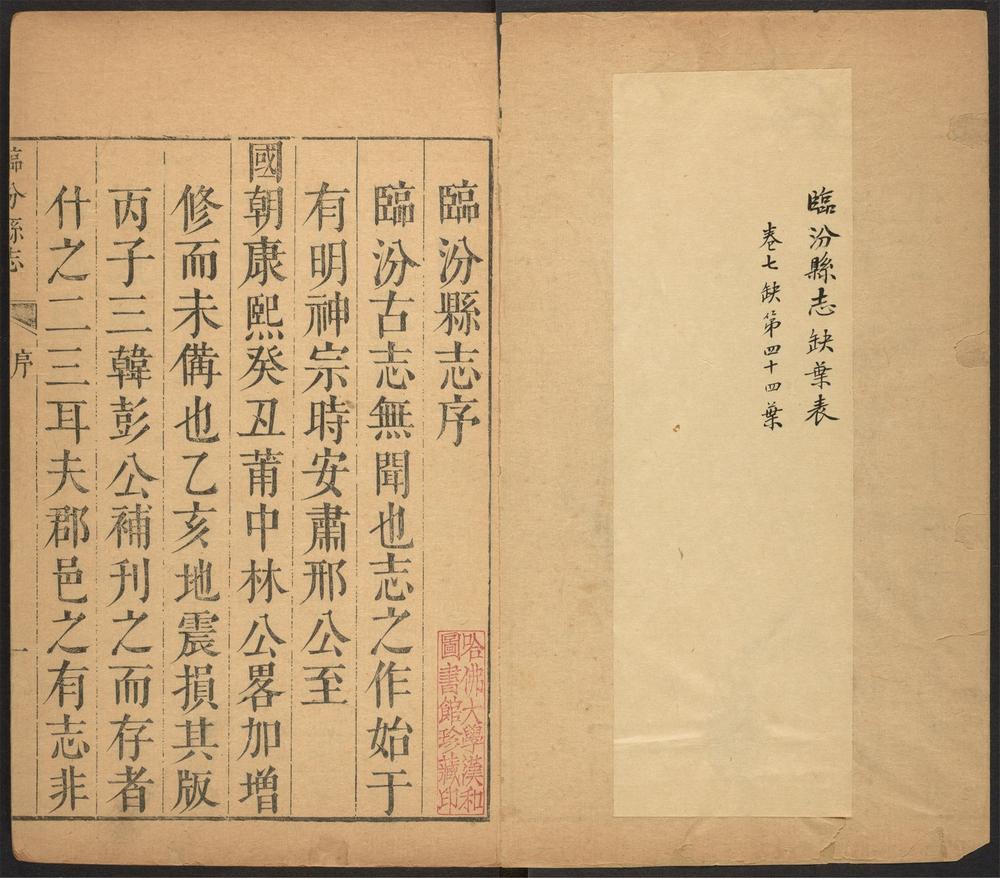 臨汾縣志缺葉表
卷七缺第四十四葉
臨汾縣志序
臨汾古志無聞也志之作始于
有明神宗時安肅邢公至
國朝康熙癸丑莆中林公畧加增
修而未備也乙亥地震損其版
丙子三韓彭公補刊之而存者
什之二三耳夫郡邑之有志非
臨汾縣志
序
一
哈佛大學漢和
圖書館珍藏印